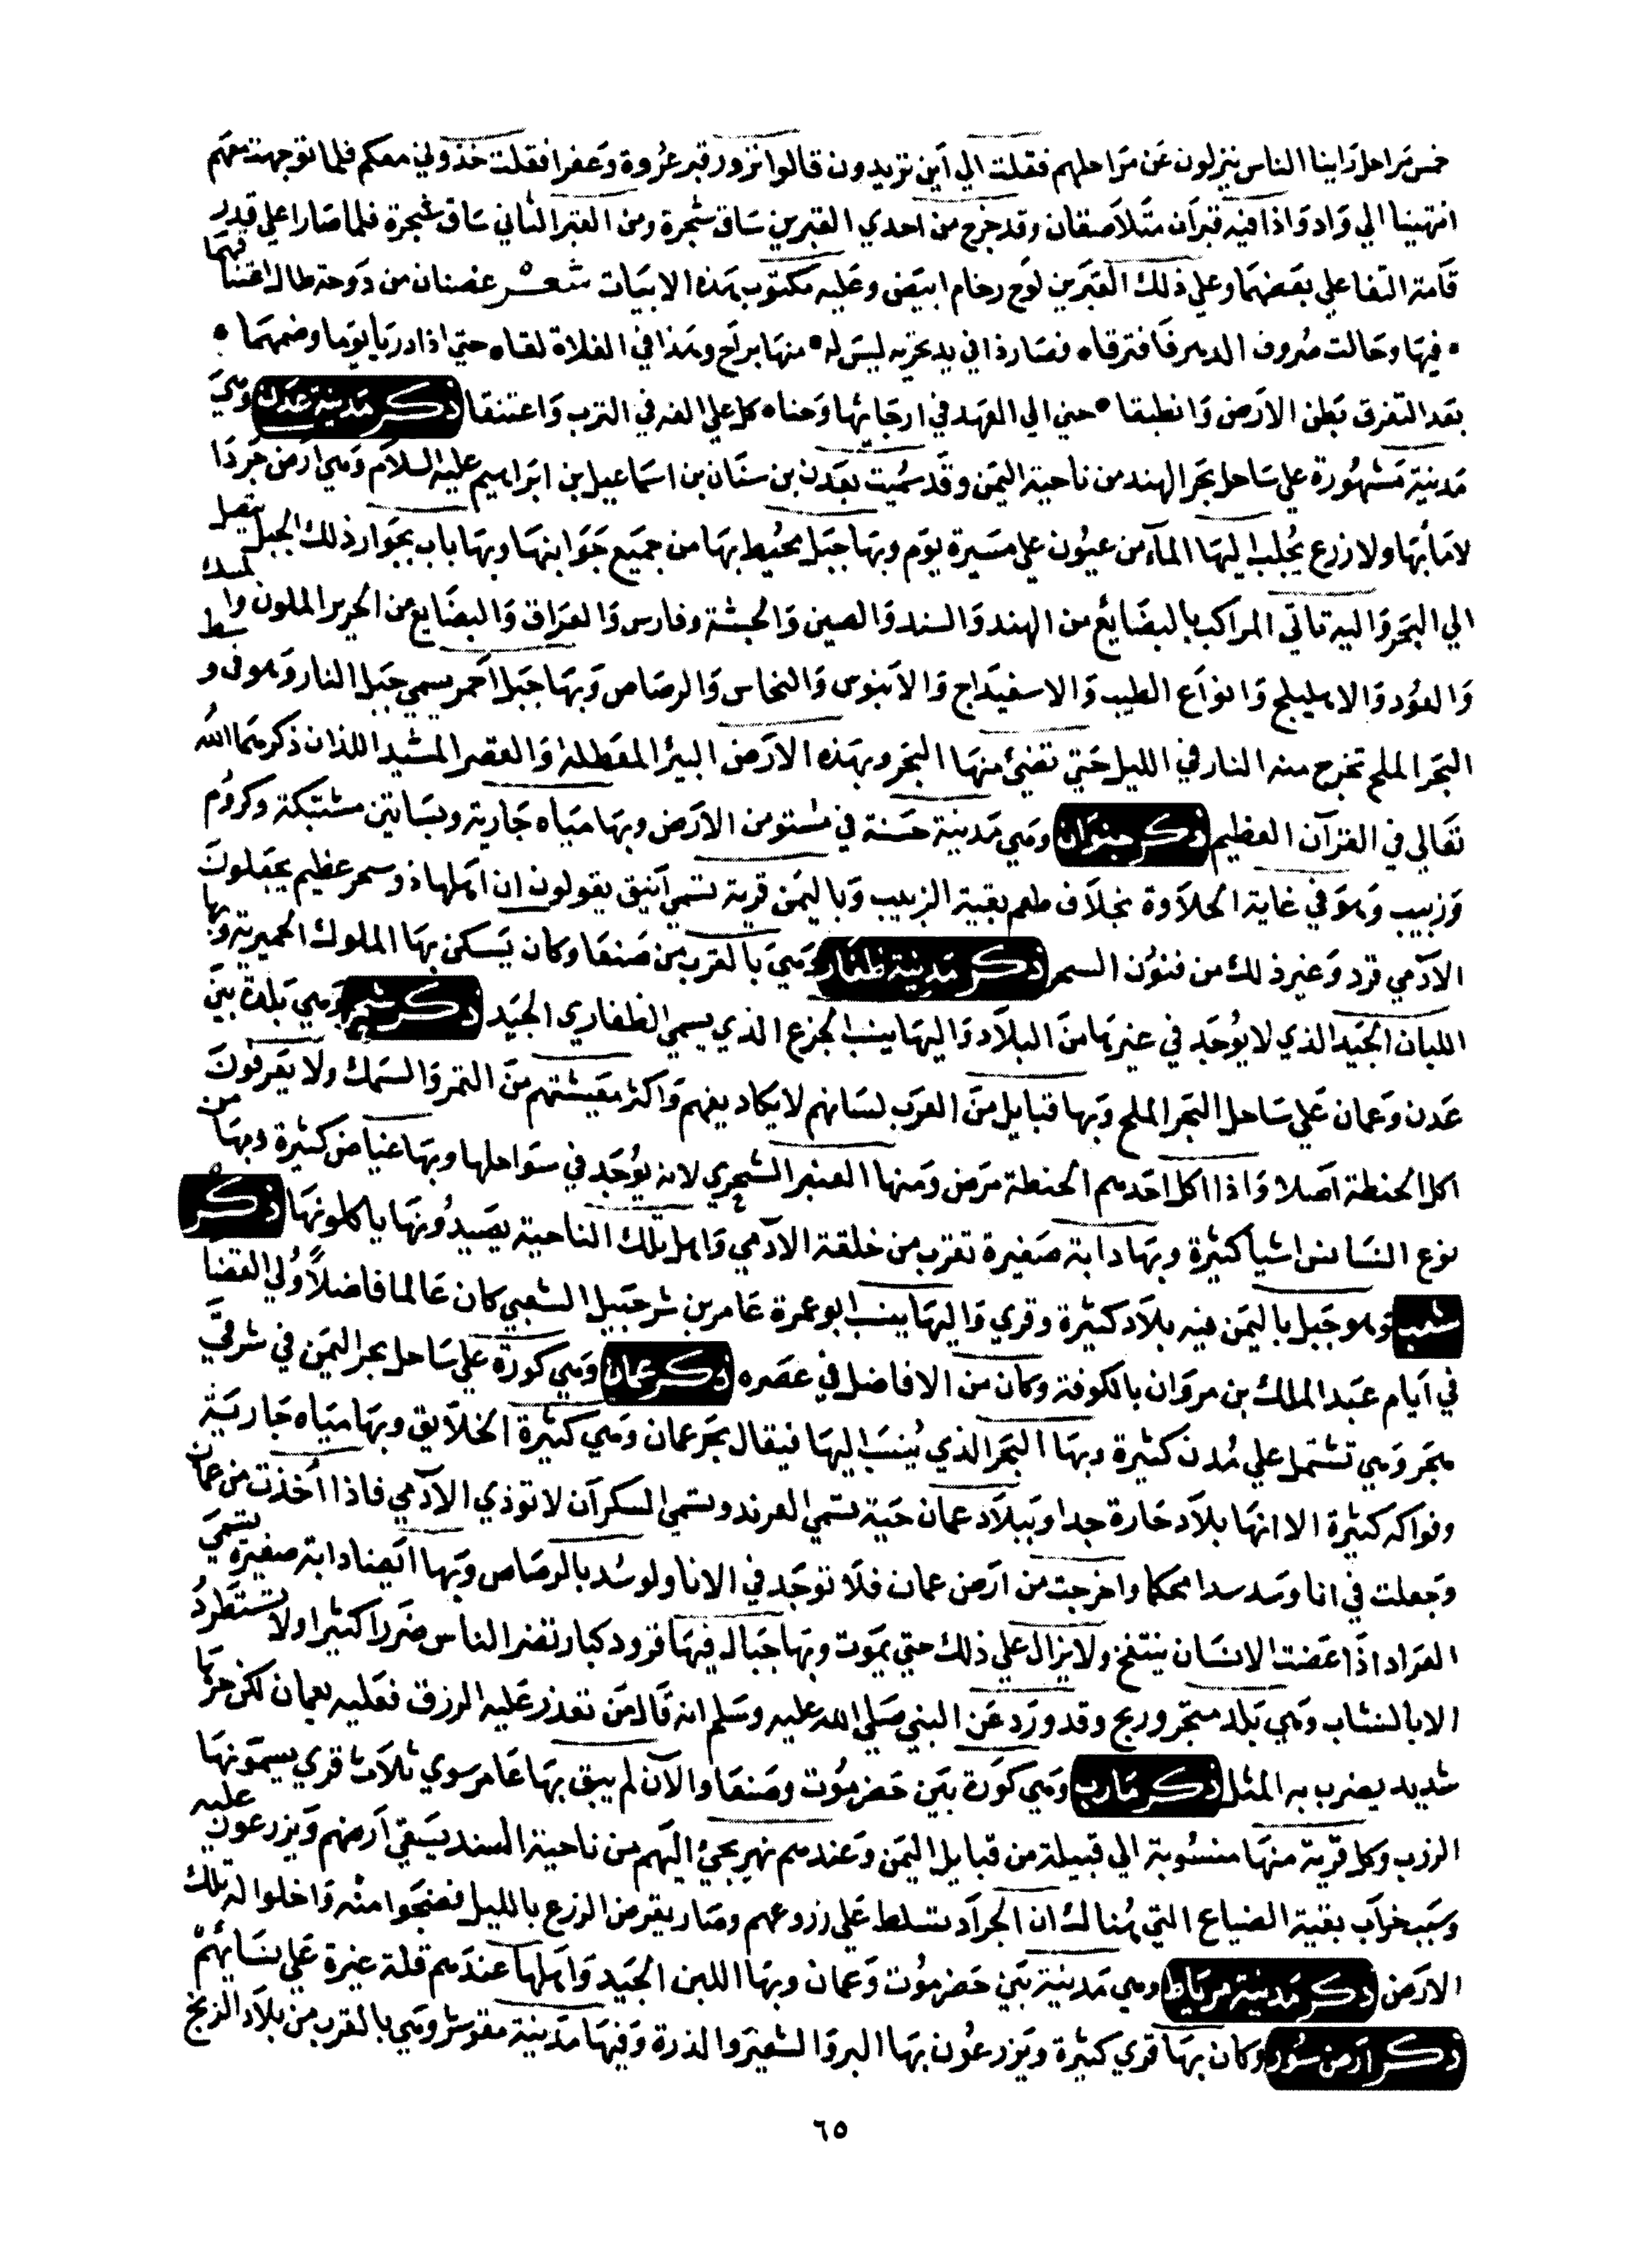 خمس مراحل راينا الناس ينزلون عن مراحلهم فقلت الي اين تريدون قالوا نزور قبر عروة وعفرا فقلت خذوني معكم فلما توجهت معهم
انتهينا الي واد واذا فيه قبران متلاصقان وقد خرج من احدي القبرين ساق شجرة ومن القبر الثاني ساق شجرة فلما صارا علي قدر
قامة التفا علي بعضهما وعلي ذلك القبرين لوح رخام ابيض وعليه مكتوب بهذه الابيات شعر غصنان من دوحة طال
فيها وحالت صروف الدهر فافترقا فصار ذا في يد تحزيه ليس له منها براح وهذا في الفلاة لقا حتي اذا دريا يوما وضمهما
بعد التفرق بطن الارض وانطبقا حني الي العهد في ارجائها وحنا كل علي الفه في الترب واعتنقا ذكر مدينة عدن وهي
مدينة مشهورة علي ساحل بحر الهند من ناحية اليمن وقد سميت بعدن بن سنان بن اسماعيل بن ابراهيم عليه السلام وهي ارض جردا
لا ما بها ولا زرع يجلب اليها المآء من عيون علي مسيرة يوم وبها جبل يحيط بها من جميع جوانبها وبها باب بجوار ذلك الجبل يتصل
الي البحر واليه تاتي المراكب بالبضايع من الهند والسند والصين والحبشة وفارس والعراق والبضايع من الحرير الملون والمسك
والعود والاهليلج وانواع الطيب والاسفيداج والابنوس والنحاس والرصاص وبها جبل احمر يسمي جبل النار وهو في وسط
البحر الملح تخرج منه النار في الليل حتي تضئ منها البحر وبهذه الارض البير المعطلة والقصر المشيد اللذان ذكرهما الله
تعالي في القرآن العظيم ذكر وهي مدينة حسنة في مستو من الارض وبها مياه جارية وبساتين مشتبكة وكروم
وزبيب وهو في غاية الحلاوة بخلاف طعم بقية الزبيب وباليمن قرية تسمي انيق يقولون ان اهلها ذو سحر عظيم يجعلون
الآدمي قرد وغير ذلك من فنون السحر ذكر مدينة ظفار وهي بالقرب من صنعا وكان يسكن بها الملوك الحميرية وبها
اللبان الجيد الذي لا يوجد في غيرها من البلاد واليها ينسب الجزع الذي يسمي الظفاري الجيد ذكر شحر وهي بلدة بين
عدن وعمان علي ساحل البحر الملح وبها قبايل من العرب لسانهم لا يكاد يفهم واكثر معيشتهم من التمر والسمك ولا يعرفون
اكل الحنطة اصلا واذا اكل احدهم الحنطة مرض ومنها العنبر الشحري لانه يوجد في سواحلها وبها غياض كثيرة وبها من
نوع النسانس اشيا كثيرة وبها دابة صغيرة تقرب من خلقة الآدمي واهل تلك الناحية يصيدونها ياكلونها ذكر
شعب وهو جبل باليمن فيه بلاد كثيرة وقري واليها ينسب ابو عمرة عامر بن شرحبيل الشعبي كان عالما فاضلا ولي القضا
في ايام عبد الملك بن مروان بالكوفة وكان من الافاضل في عصره ذكر عمان وهي كورة علي ساحل بحر اليمن في شرقي
هجر وهي تشتمل علي مدن كثيرة وبها البحر الذي ينسب اليها فيقال بحر عمان وهي كثيرة الخلايق وبها مياه جارية
وفواكه كثيرة الا انها بلاد حارة جدا وببلاد عمان حية تسمي العربد وتسمي السكرآن لا توذي الآدمي فاذا اخذت من عمان
وجعلت في انا وسد سدا محكما واخرجت من ارض عمان فلا توجد في الانا ولو سد بالرصاص وبها ايضا دابة صغيرة تسمي
القراد اذا عضت الانسان ينتفخ ولا يزال علي ذلك حتي يموت وبها جبال فيها قرود كبار تضر الناس ضررا كثيرا ولا تستطرد
الا بالنشاب وهي بلد متجر وربح وقد ورد عن النبي صلي الله عليه وسلم انه قال من تعذر عليه الرزق فعليه بعمان لكن حرها
شديد يضرب به المثل ذكر مارب وهي كورة بين حضرموت وصنعا والآن لم يبق بها عامر سوي ثلاث قري يسمونها
الرزب وكل قرية منها منسوبة الي قبيلة من قبايل اليمن وعندهم نهر يجئ اليهم من ناحية السند يسقي ارضهم ويزرعون عليه
وسبب خراب بقية الضياع التي هنالك ان الجراد تسلط علي زروعهم وصار يقرض الزرع بالليل فضجوا منه واخلوا له تلك
الارض ذكر مدينة مرباط وهي مدينة بين حضرموت وعمان وبها اللبن الجيد واهلها عندهم قلة غيرة علي نسائهم
ذكر ارض سود وكان بها قري كثيرة ويزرعون بها البر والشعير والذرة وفيها مدينة مقوشر وهي بالقرب من بلاد الزنج
٦٥